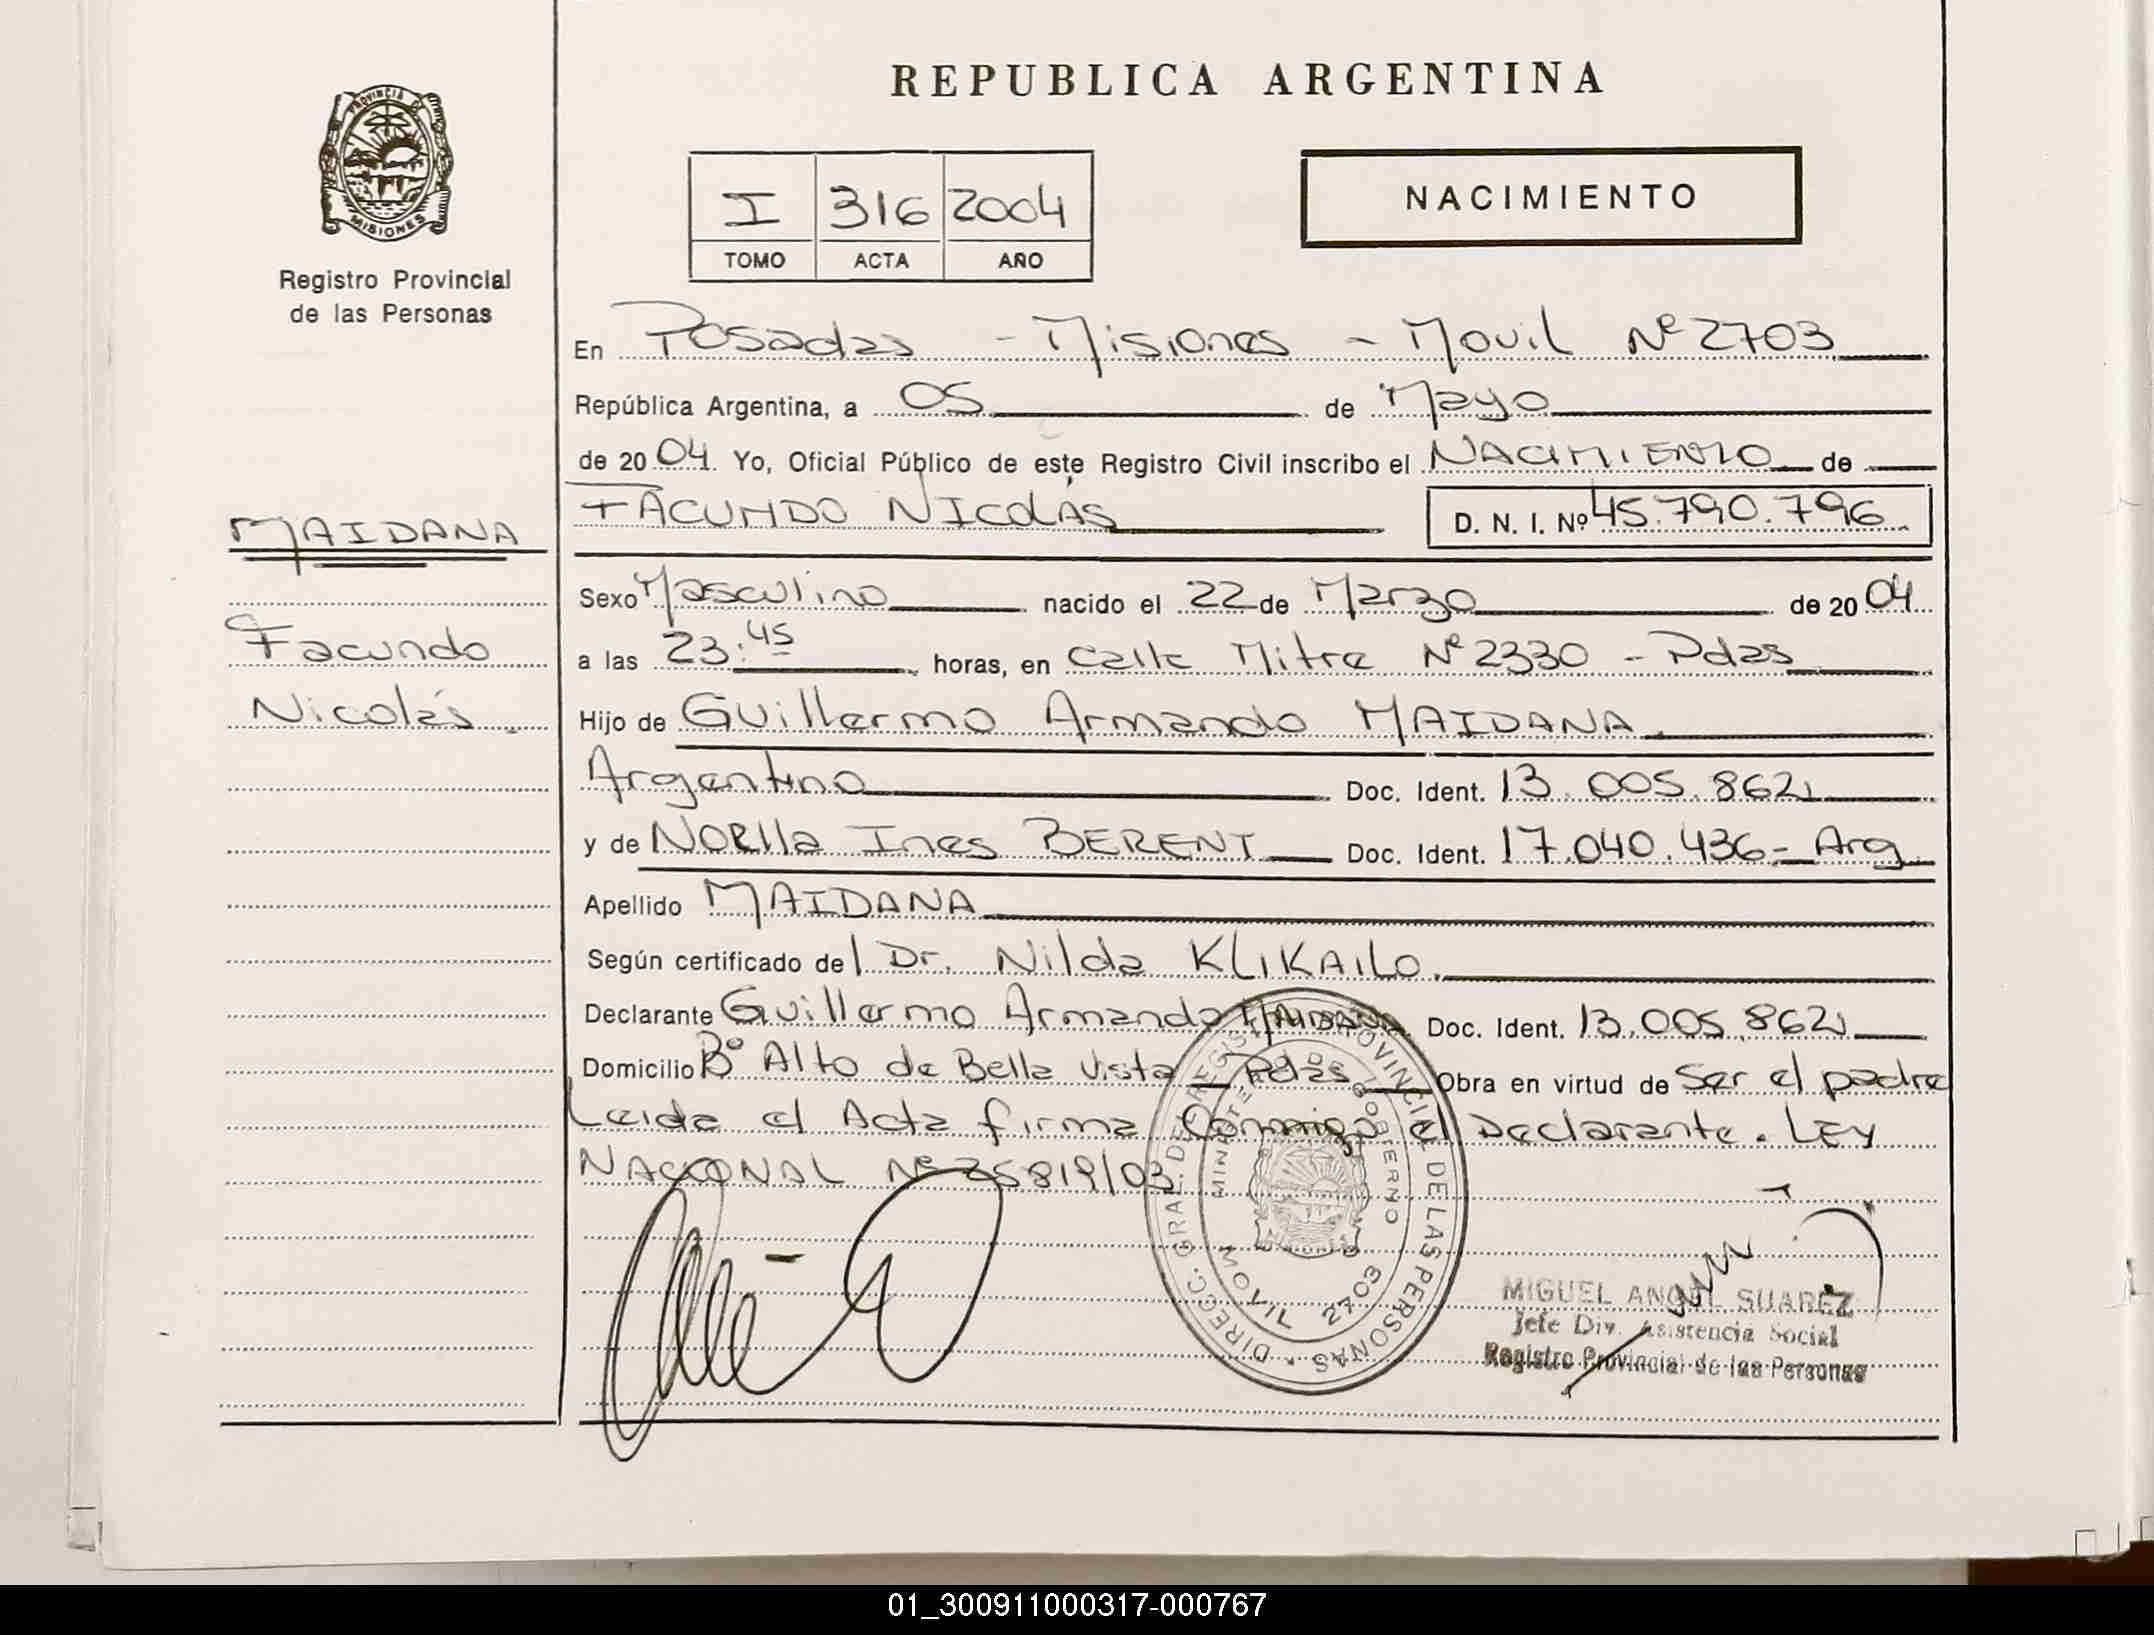 REPUBLICA ARGENTINA
PROVINCIA DE
MISIONES
Registro Provincial
de las Personas
I 316 2004
TOMO ACTA AÑO
NACIMIENTO
En Posadas - Misiones - Movil Nº 2703
República Argentina, a 05 de Mayo
de 2004. Yo, Oficial Público de este Registro Civil inscribo el NACIMIENTO de
FACUNDO NICOLÁS D. N. I. Nº 45.790.796
MAIDANA
Facundo
Nicolás.
Sexo Masculino nacido el 22 de Marzo de 2004
a las 23:45 horas, en Calle Mitre Nº 2330 - Pdas
Hijo de Guillermo Armando MAIDANA
Argentino Doc. Ident. 13.005.862
y de NOElla Ines BERENT Doc. Ident. 17.040.436 - Arg.
Apellido MAIDANA
Según certificado del Dr. Nilda KLIKAILO.
Declarante Guillermo Armando MAIDANA Doc. Ident. 13.005.862
Domicilio Bº Alto de Bella Vista - Pdas Obra en virtud de Ser el padre
Leida el Acta firma Conmigo el Declarante. LEY
NACIONAL Nº 25819/03
DIRECC. GRAL. DEL REGISTRO PROVINCIAL DE LAS PERSONAS
MINISTERIO DE GOBIERNO
MOVIL 2703
MIGUEL ANGEL SUAREZ
Jefe Div. Asistencia Social
Registro Provincial de las Personas
01_300911000317-000767